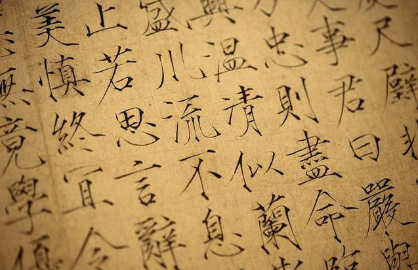 尺璧非
事君曰嚴與
忠則盡命臨
興温清似蘭斯
盛川流不息
止若思言辭
美慎終宜令
無竟學優